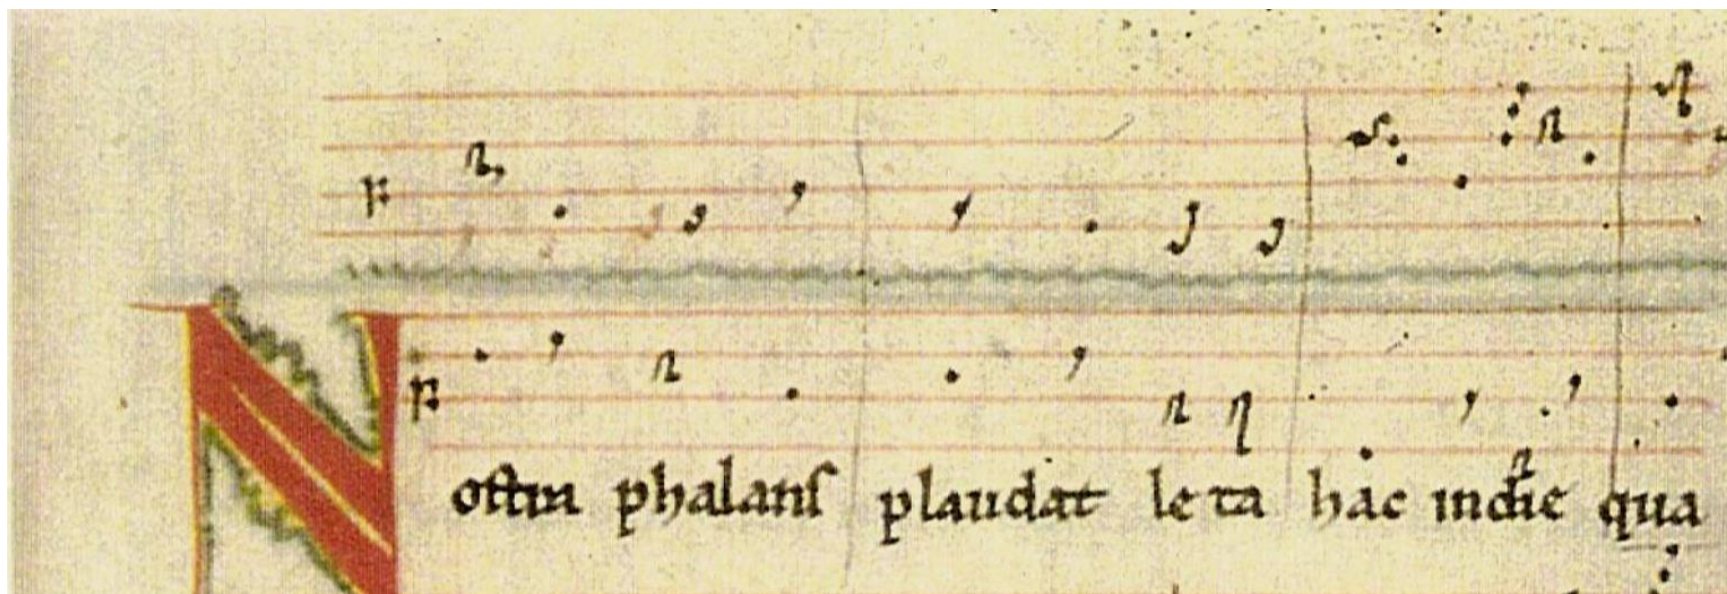 Nostra phalans plaudat leta hac in die qua